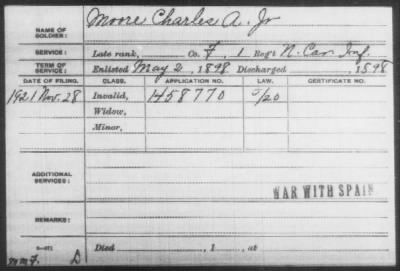 NAME OF SOLDIER: Moore Charles A. Jr
SERVICE: Late rank, Co. F, 1 Reg't N. Car. Inf.
TERM OF SERVICE: Enlisted May 2, 1898 Discharged , 1898
DATE OF FILING. CLASS. APPLICATION NO. LAW. CERTIFICATE NO.
1921 Nov. 28 Invalid, 1458770
Widow,
Minor,
ADDITIONAL SERVICES:
WAR WITH SPAIN
REMARKS:
Died , 1 , at